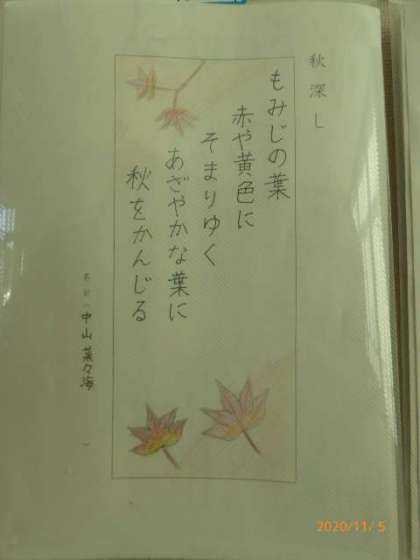 秋深し
もみじの葉
赤や黄色に
そまりゆく
あざやかな葉に
秋をかんじる
名前（中山 菜々海）
2020/11/5